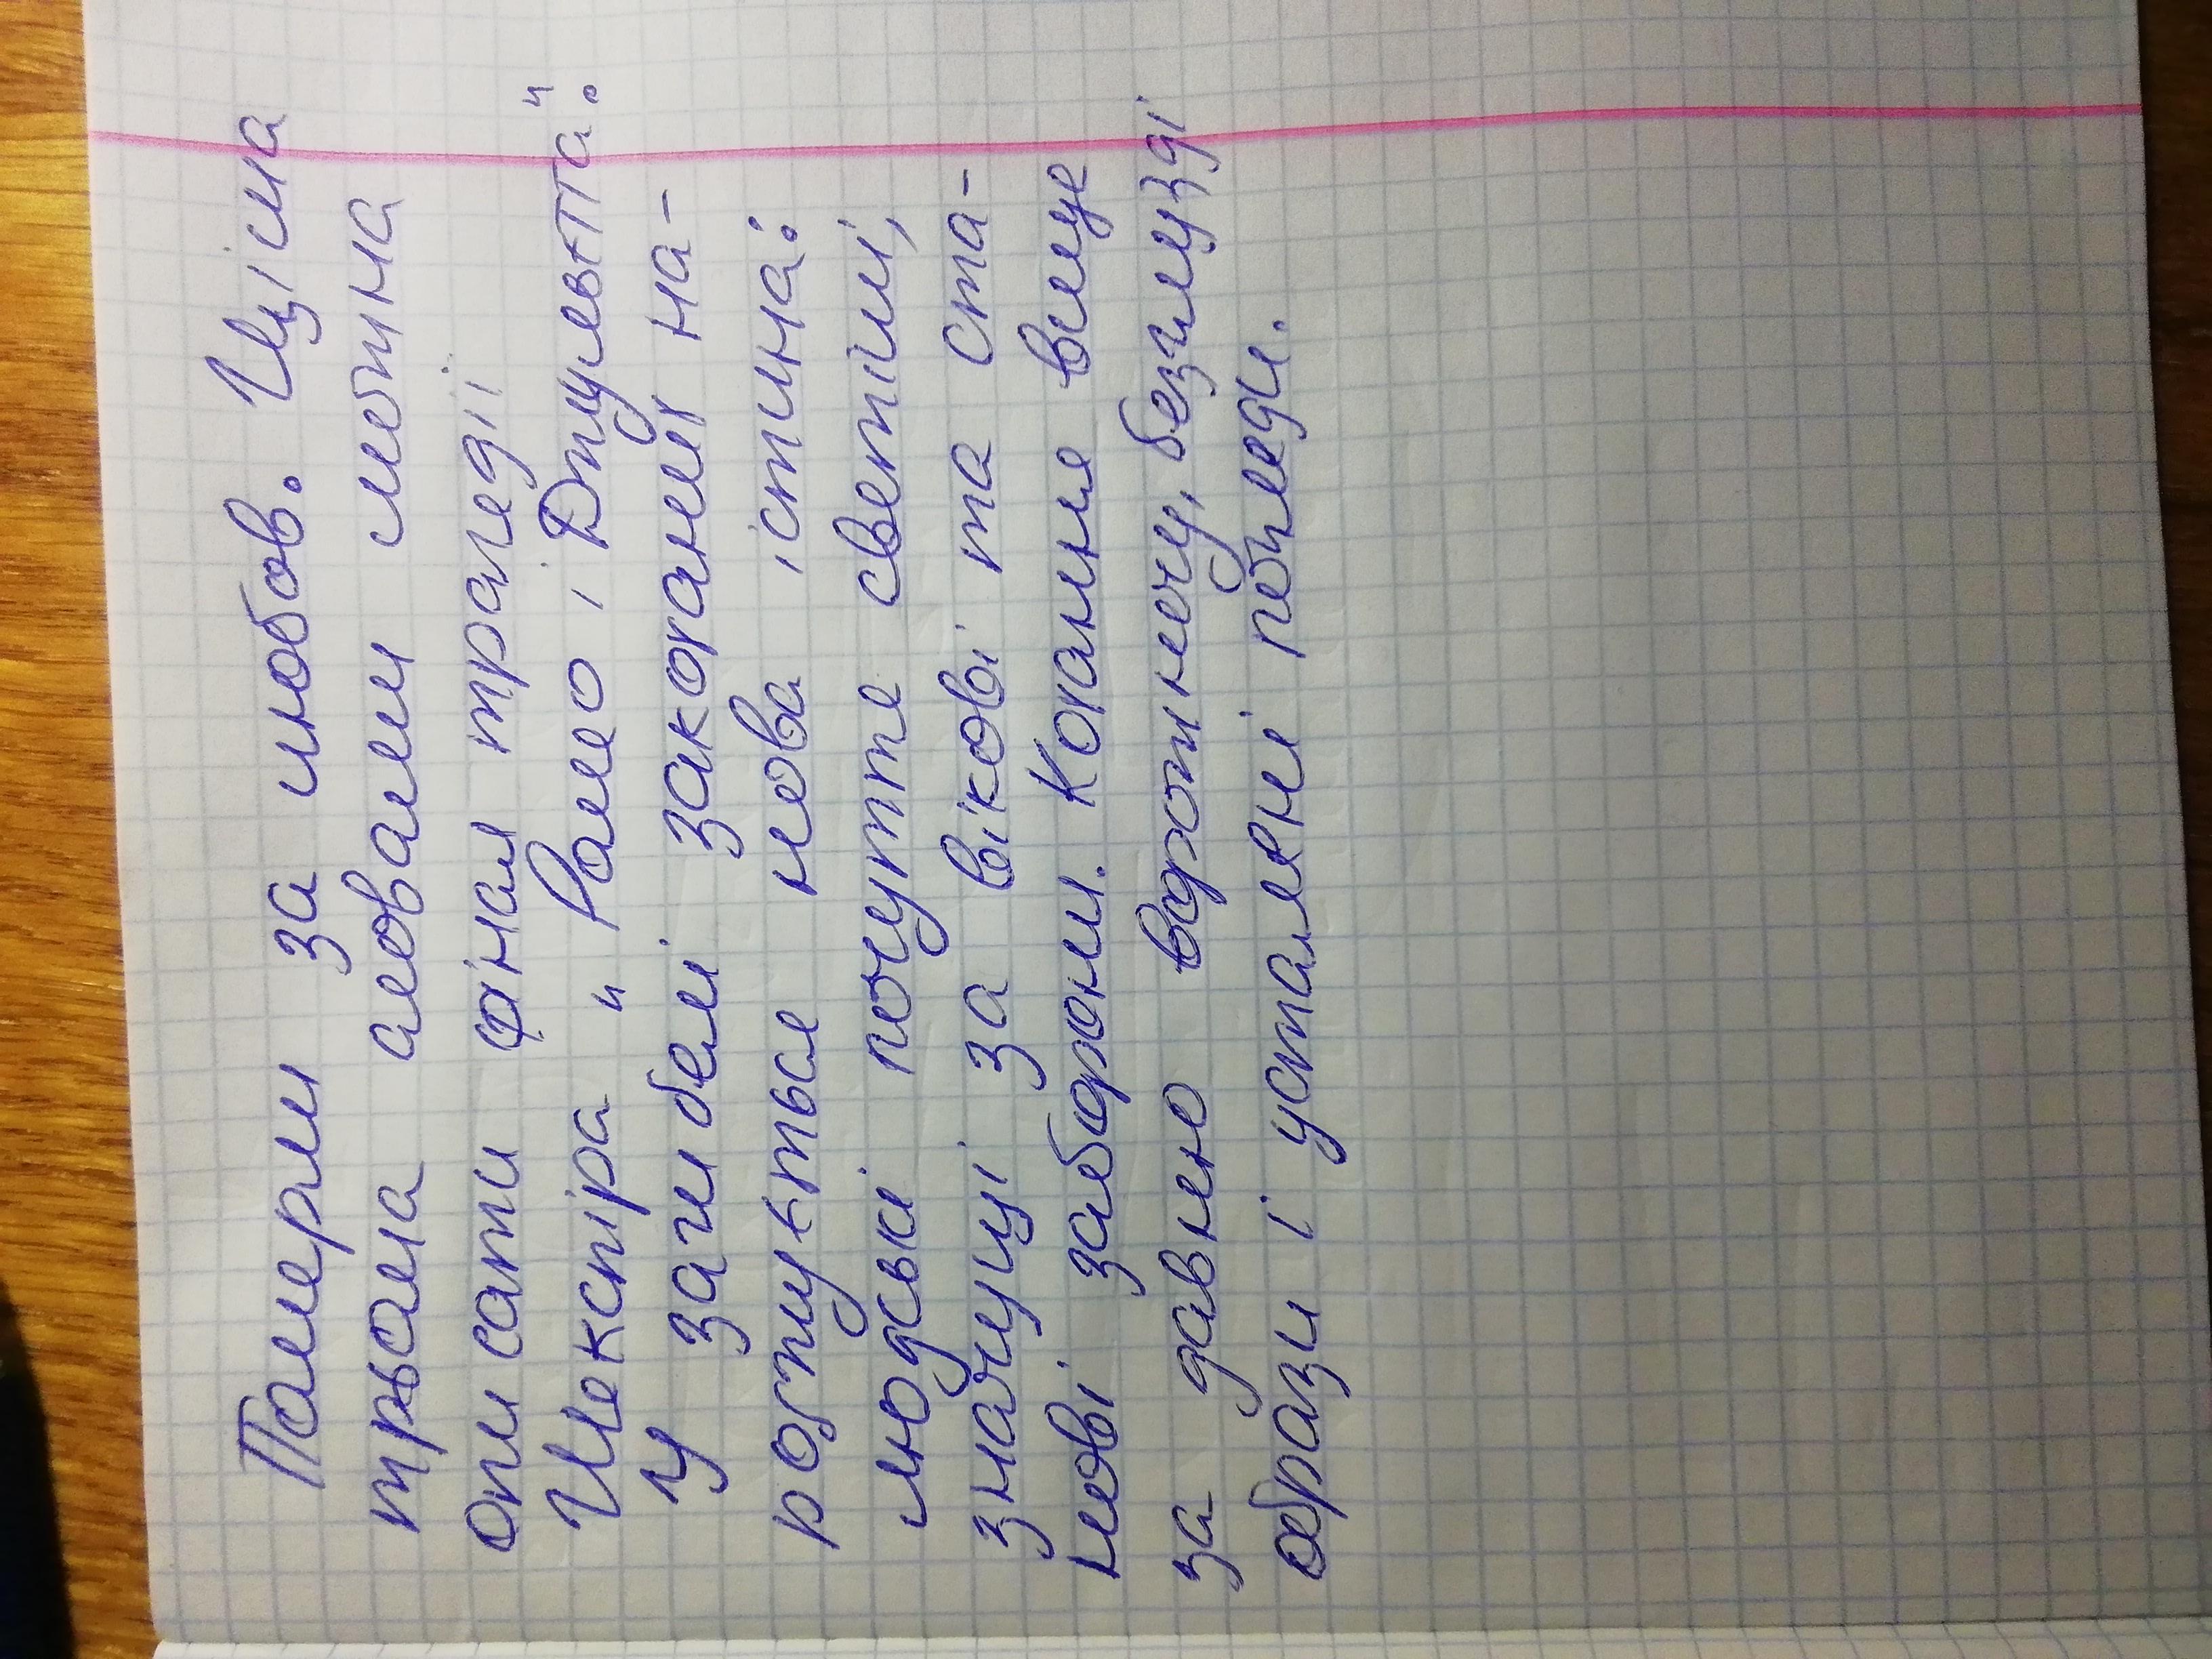 Померти за любов. Цісма
трьома словами можна
описати фінал трагедії
Шекспіра "Ромео і Джульєтта".
У загибелі закоханих на-
роджується нова істина:
людські почуття святіші,
значущі за вікові та ста-
нові заборони. Кохання вище
за давню ворожнечу, безглузді
образи і усталені погляди.